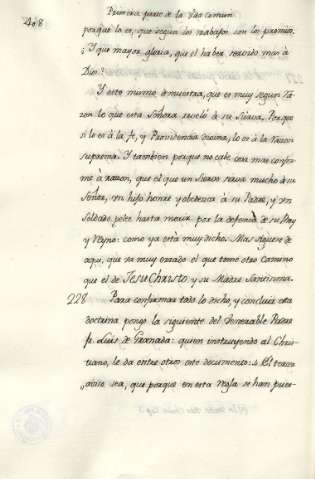 408
Primera parte de la Vida comun
porque la es, que seguir los trabajos con los premios.
¿Y que mayor gloria, que el haber servido mas à
Dios?
Y esto mismo à nuestra, que es muy segun ra-
zon lo que esta Señora reveló de su Sierva. Porque
si lo es à la fe, y Providencia divina, lo es à la razon
suprema. Y tambien porque no cabe cosa mas confor-
me à razon, que el que un Siervo sirva mucho à su
Señor, un hijo honre y obedezca à su Padre, y un
Soldado pelee hasta morir por la defensa de su Rey
y Reyno: como ya està muy dicho. Mas siguese de
aqui, que va muy errado el que toma otro Camino
que el de Jesu Christo, y su Madre Santisima.
228 Para confirmar todo lo dicho, y concluir esta
doctrina pongo la siguiente del Venerable Padre
fr. Luis de Granada: quien instruyendo al Chris-
tiano, le da entre otros este documento: El tercer
aviso sea, que porque en esta regla se han pues-